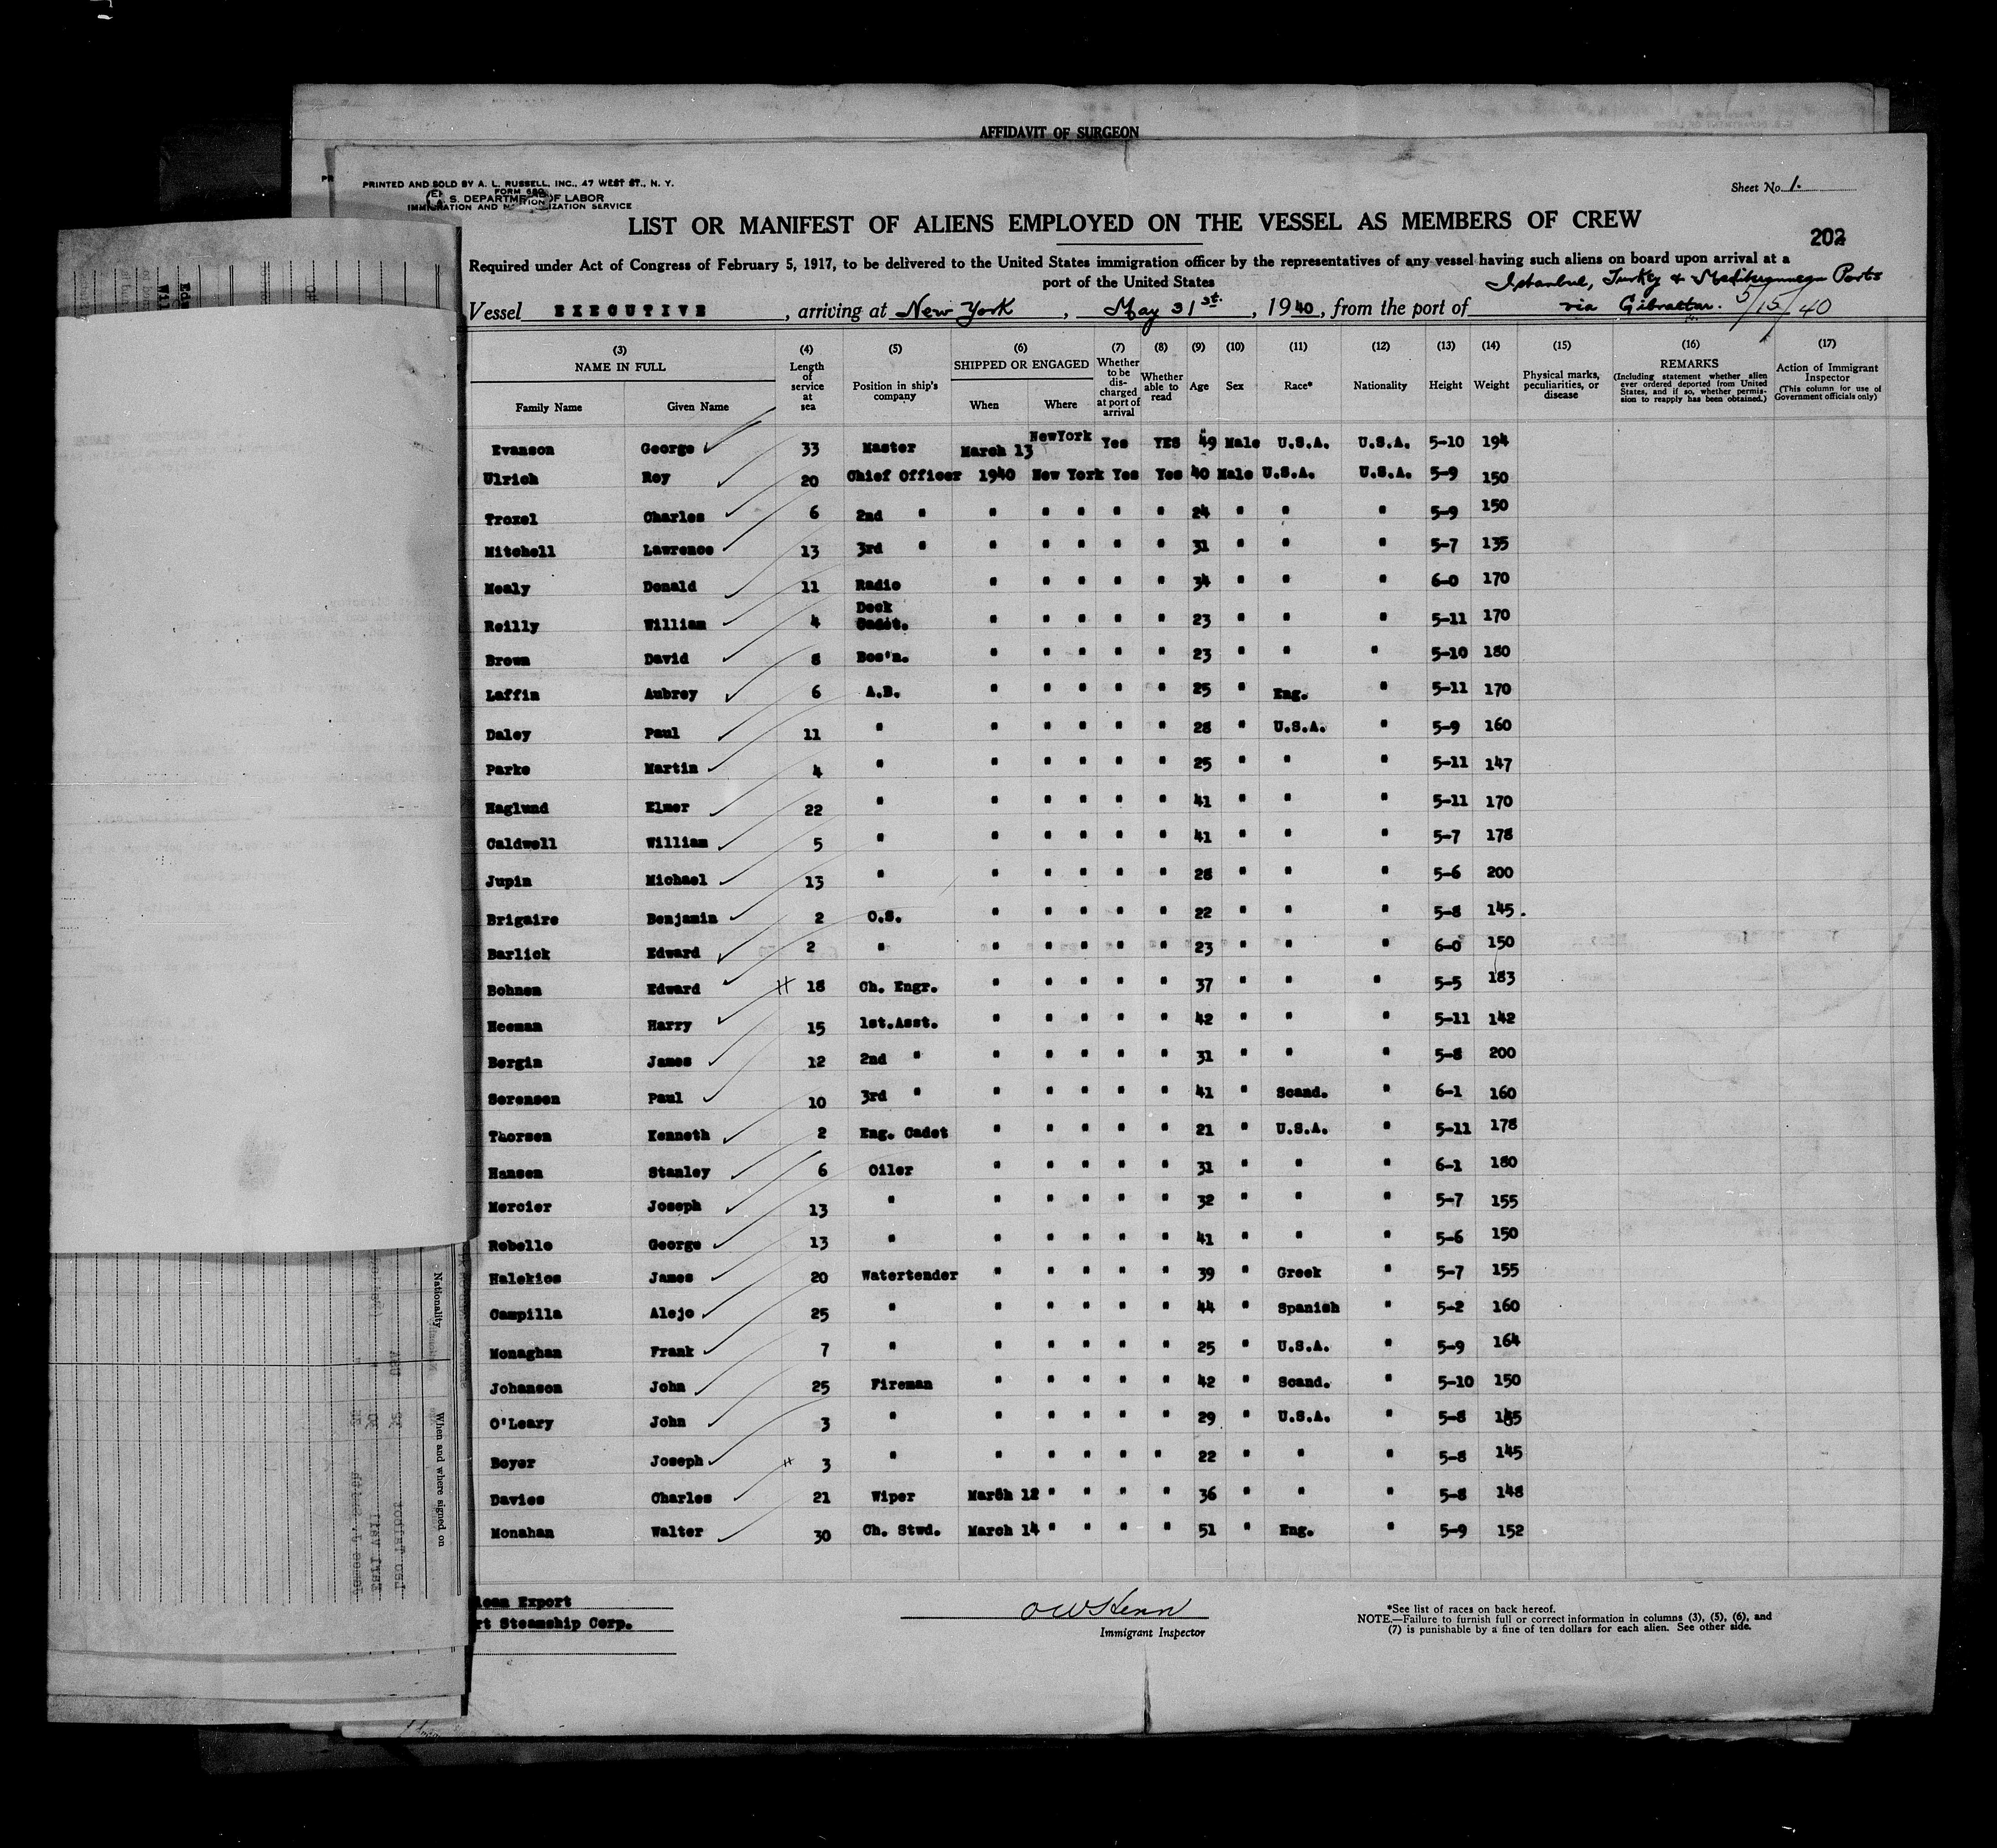 AFFIDAVIT OF SURGEON
PRINTED AND SOLD BY A. L. RUSSELL, INC., 47 WEST ST., N. Y.
FORM 680
S. DEPARTMENT OF LABOR
IMMIGRATION AND NATURALIZATION SERVICE
Sheet No. 1.
LIST OR MANIFEST OF ALIENS EMPLOYED ON THE VESSEL AS MEMBERS OF CREW
202
Required under Act of Congress of February 5, 1917, to be delivered to the United States immigration officer by the representatives of any vessel having such aliens on board upon arrival at a
port of the United States
Istanbul, Turkey & Mediterranean Ports
Vessel EXECUTIVE, arriving at New York, May 31st., 1940, from the port of via Gibraltar. 5/15/40
(3) (4) (5) (6) (7) (8) (9) (10) (11) (12) (13) (14) (15) (16) (17)
NAME IN FULL Length of service at sea Position in ship's company SHIPPED OR ENGAGED Whether to be discharged at port of arrival Whether able to read Age Sex Race* Nationality Height Weight Physical marks, peculiarities, or disease REMARKS (Including statement whether alien ever ordered deported from United States, and if so, whether permission to reapply has been obtained.) Action of Immigrant Inspector (This column for use of Government officials only)
Family Name Given Name When Where
Evanson George 33 Master March 13 NewYork Yes YES 49 Male U.S.A. U.S.A. 5-10 194
Ulrich Roy 20 Chief Officer 1940 New York Yes Yes 40 Male U.S.A. U.S.A. 5-9 150
Troxel Charles 6 2nd " " " " " " 24 " " " 5-9 150
Mitchell Lawrence 13 3rd " " " " " " 31 " " " 5-7 135
Mealy Donald 11 Radio " " " " " 34 " " " 6-0 170
Reilly William 4 Deck Cadet. " " " " " 23 " " " 5-11 170
Brown David 8 Bos'n. " " " " " 23 " " " 5-10 180
Laffin Aubrey 6 A.B. " " " " " 25 " Eng. " 5-11 170
Daley Paul 11 " " " " " " 28 " U.S.A. " 5-9 160
Parke Martin 4 " " " " " " 25 " " " 5-11 147
Haglund Elmer 22 " " " " " " 41 " " " 5-11 170
Caldwell William 5 " " " " " " 41 " " " 5-7 178
Jupin Michael 13 " " " " " " 28 " " " 5-6 200
Brigaire Benjamin 2 O.S. " " " " " 22 " " " 5-8 145.
Barlick Edward 2 " " " " " " 23 " " " 6-0 150
Bohnen Edward 18 Ch. Engr. " " " " " 37 " " " 5-5 183
Heeman Harry 15 1st.Asst. " " " " " 42 " " " 5-11 142
Bergin James 12 2nd " " " " " " 31 " " " 5-8 200
Sorensen Paul 10 3rd " " " " " " 41 " Scand. " 6-1 160
Thorsen Kenneth 2 Eng. Cadet " " " " " 21 " U.S.A. " 5-11 178
Hansen Stanley 6 Oiler " " " " " 31 " " " 6-1 180
Mercier Joseph 13 " " " " " " 32 " " " 5-7 155
Rebello George 13 " " " " " " 41 " " " 5-6 150
Halekios James 20 Watertender " " " " " 39 " Greek " 5-7 155
Campilla Alejo 25 " " " " " " 44 " Spanish " 5-2 160
Monaghan Frank 7 " " " " " " 25 " U.S.A. " 5-9 164
Johanson John 25 Fireman " " " " " 42 " Scand. " 5-10 150
O'Leary John 3 " " " " " " 29 " U.S.A. " 5-8
Boyer Joseph 3 " " " " " " 22 " " " 5-8 145
Davies Charles 21 Wiper March 12 " " " " 36 " " " 5-8 148
Monahan Walter 30 Ch. Stwd. March 14 " " " " 51 " Eng. " 5-9 152
Export
Steamship Corp.
OWKenn
Immigrant Inspector
*See list of races on back hereof.
NOTE.—Failure to furnish full or correct information in columns (3), (5), (6), and
(7) is punishable by a fine of ten dollars for each alien. See other side.
Nationality
When and where signed on